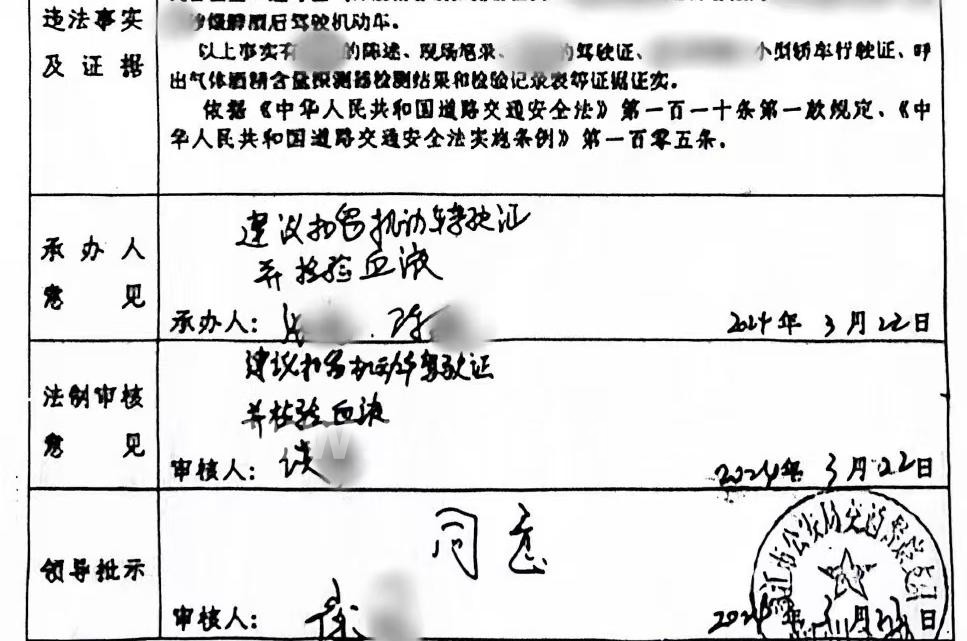 违法事实及证据
涉嫌醉酒后驾驶机动车。
以上事实有 的陈述、现场笔录、 的驾驶证、 小型轿车行驶证、呼
出气体酒精含量探测器检测结果和检验记录表等证据证实。
依据《中华人民共和国道路交通安全法》第一百一十条第一款规定、《中
华人民共和国道路交通安全法实施条例》第一百零五条。
承办人意见
建议扣留机动车驾驶证
并检验血液
承办人: 陈 2024年3月22日
法制审核意见
建议扣留机动车驾驶证
并检验血液
审核人: 2024年3月22日
领导批示
同意
江市公安局交通警察支队
审核人: 徐 2024年3月22日